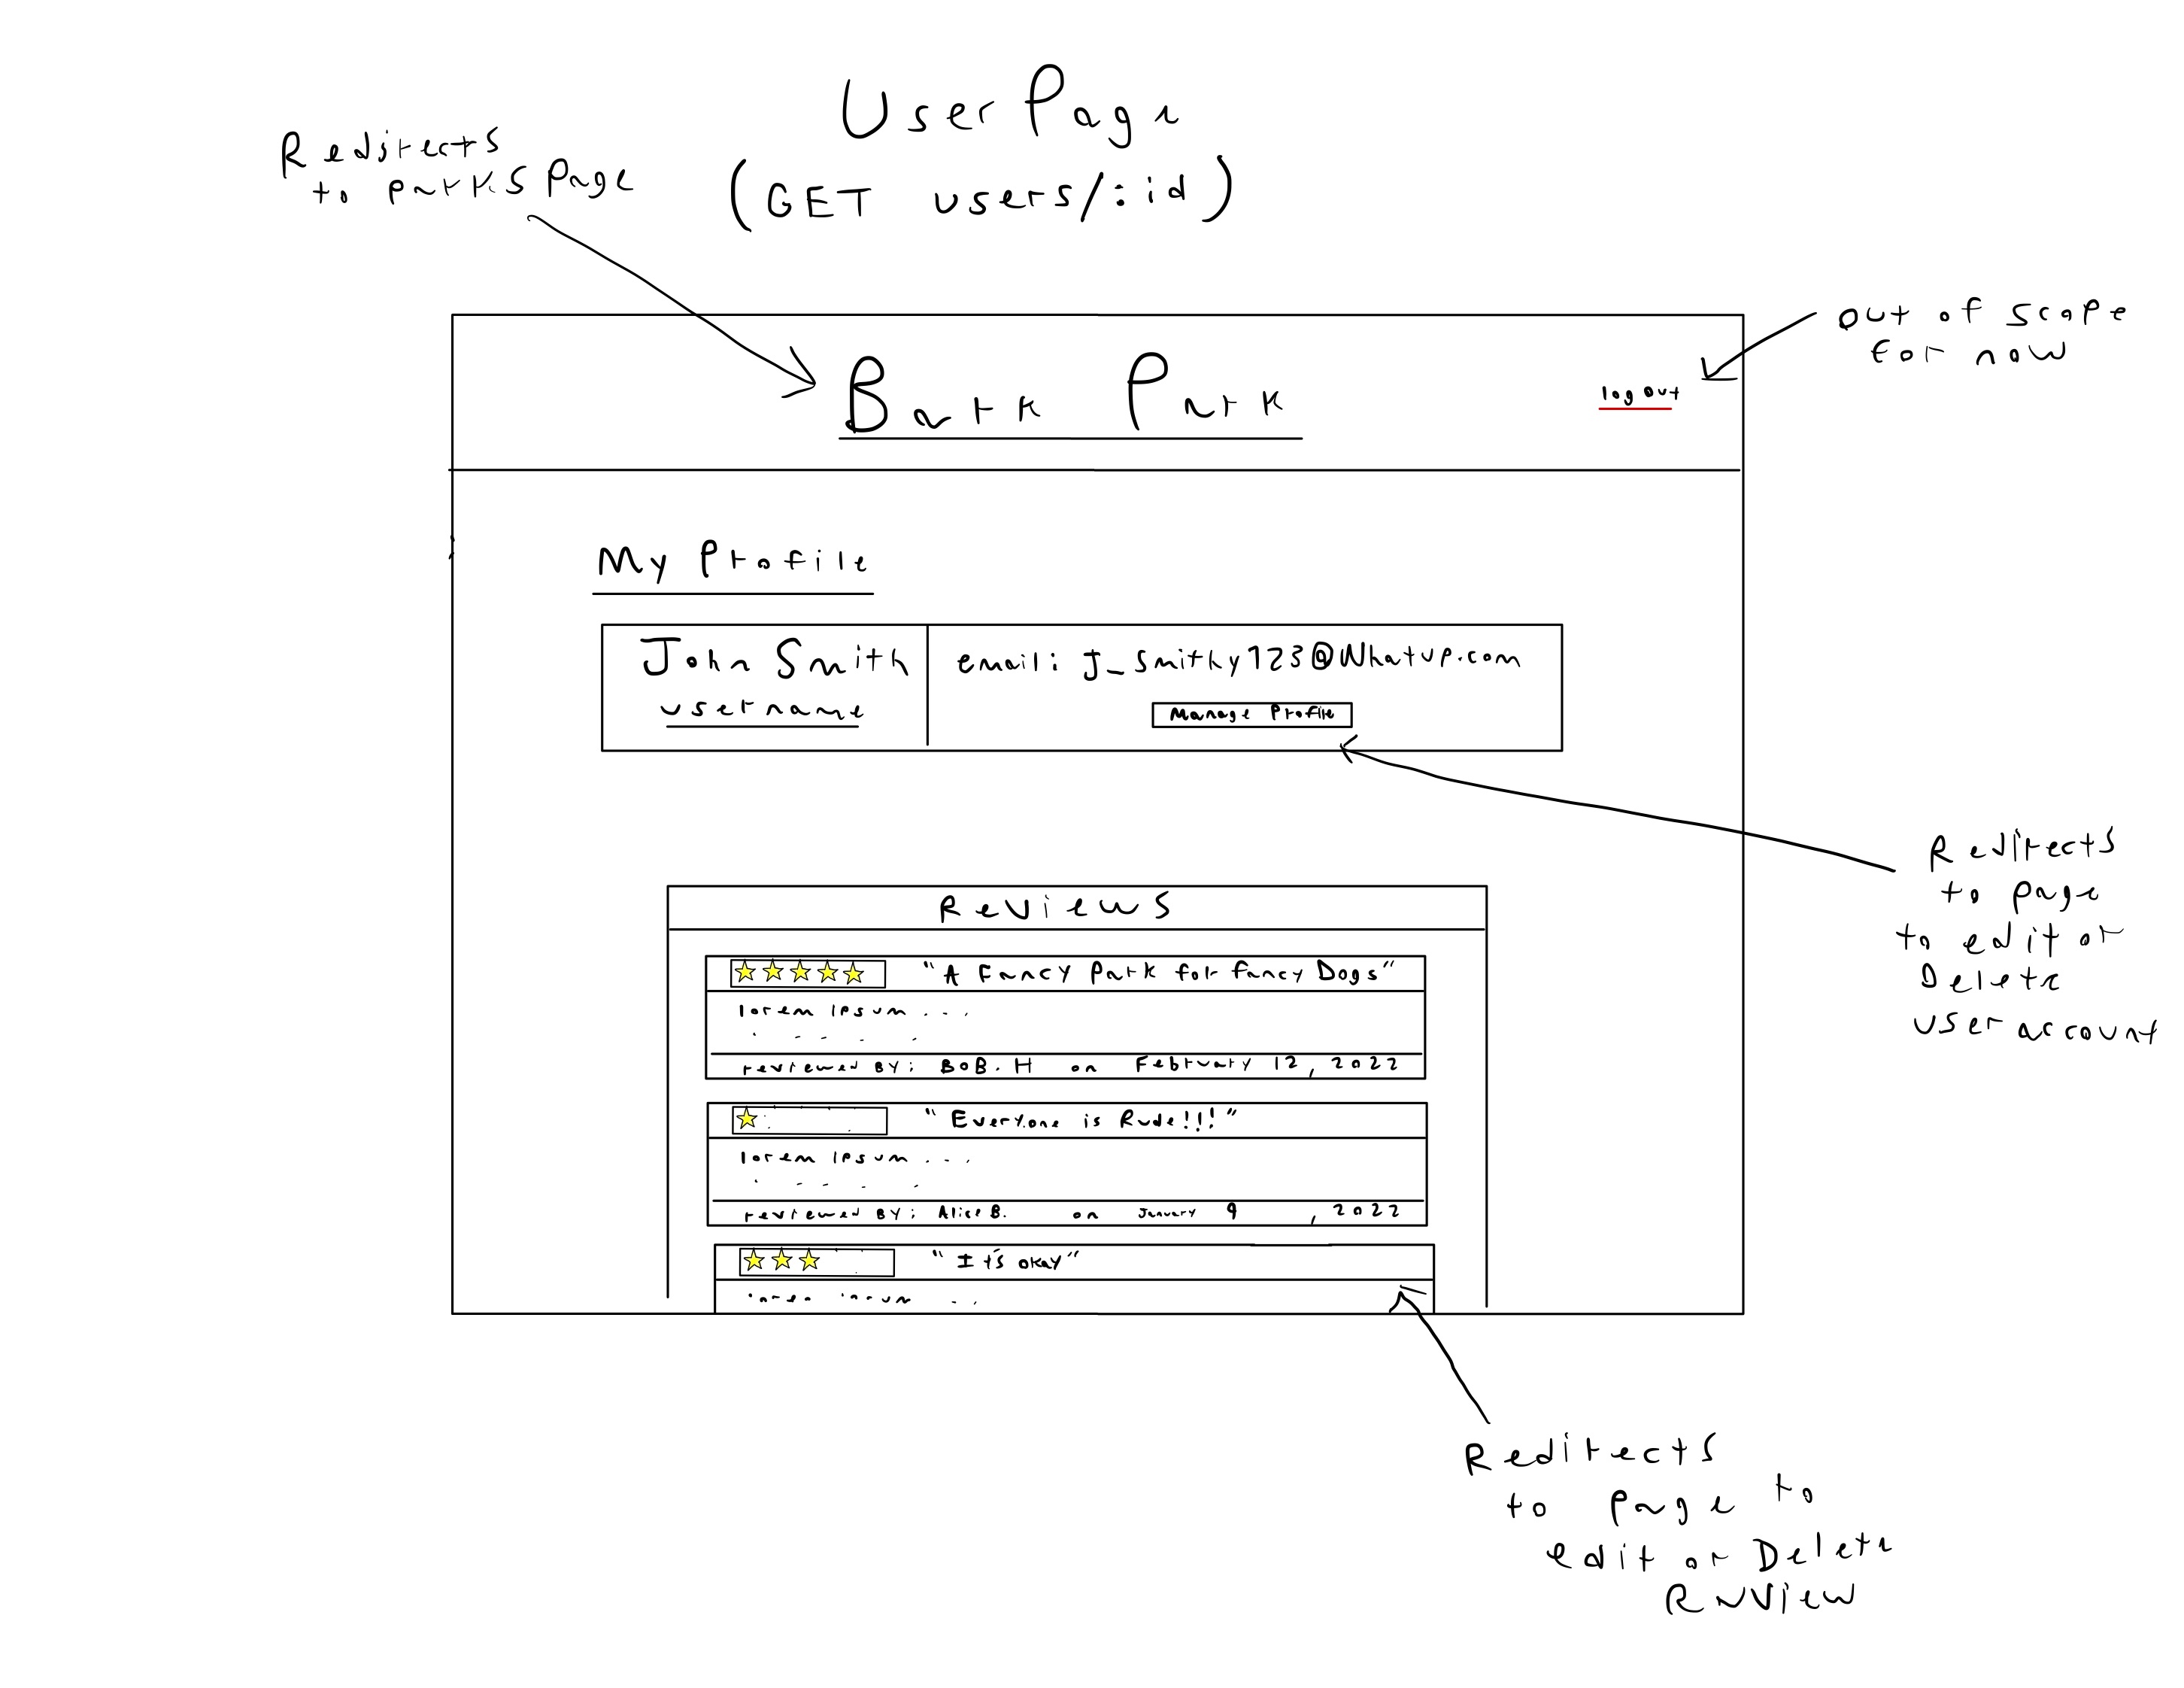 User Page
(GET users/:id)
Redirects
to parks page
out of scope
for now
Bark Park
log out
My Profile
John Smith
username
email: J_Smithy123@Whatup.com
Manage Profile
Redirects
to page
to edit or
Delete
user account
Reviews
"A Fancy Park for fancy Dogs"
lorem ipsum ...
reviewed BY: BOB. H on February 12, 2022
"Everyone is Rude!!!"
lorem ipsum ...
reviewed BY: Alice B. on January 9, 2022
"It's okay"
lorem ipsum ...
Redirects
to page to
edit or Delete
Review